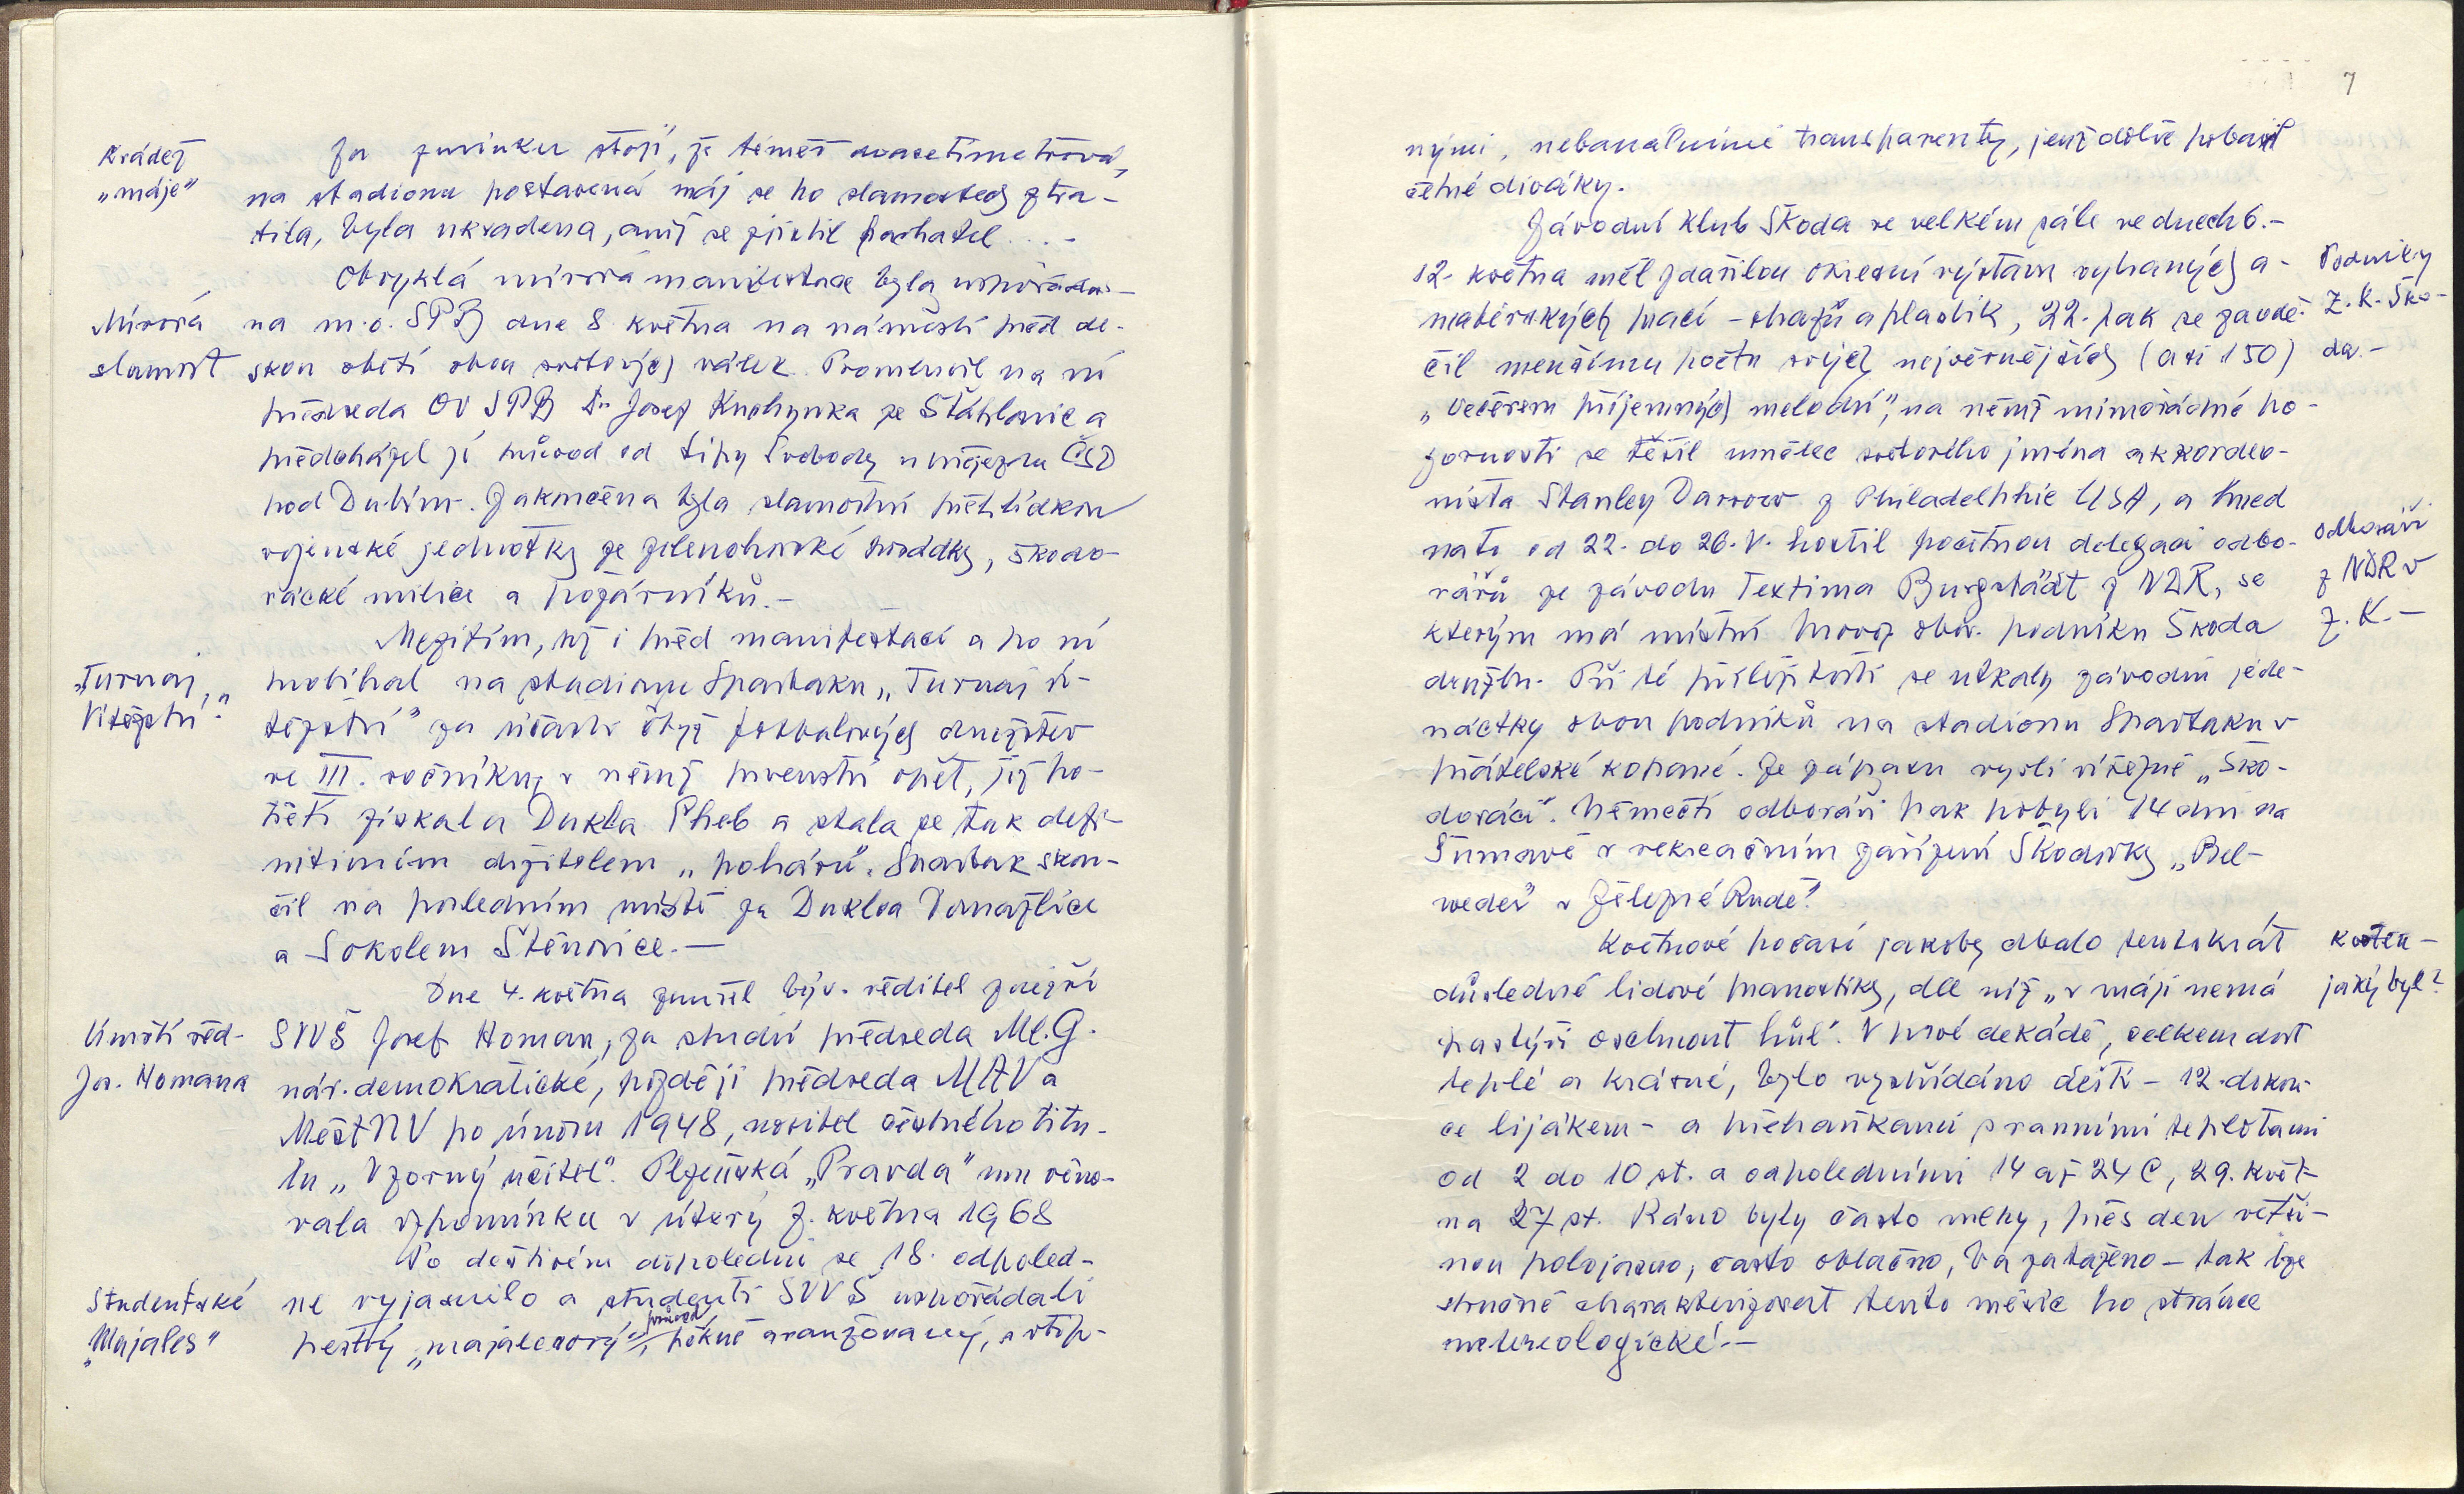 Krádež
„máje"
Za zmínku stojí, že téměř dvacetimetrová,
na stadionu postavená máj se po slavnostech ztra-
tila, byla ukradena, aniž se zjistil pachatel....-
Mírová
slavnost
Obvyklá mírová manifestace byla uspořádá-
na m.o. SPB dne 8. května na náměstí před de-
skou obětí obou světových válek. Promluvil na ní
předseda OV SPB Dr Josef Kuchynka ze Šťáhlavic a
předcházel jí průvod od Lípy Svobody u nájezdu ČSD
pod Dubím. Zakončena byla slavnostní přehlídkou
vojenské jednotky ze zelenohorské posádky, škodo-
vácké milice a požárníků.-
„Turnaj
Vítězství."
Mezitím, tj i před manifestací a po ní
probíhal na stadionu Spartaku „Turnaj ví-
tězství" za účasti čtyř fotbalových družstev
ve III. ročníku, v němž prvenství opět, již po-
třetí získala Dukla Cheb a stala se tak defi-
nitivním držitelem „poháru". Spartak skon-
čil na posledním místě za Duklou Domažlice
a Sokolem Štěnovice.-
Úmrtí řed-
Jos. Homana
Dne 4. května zemřel býv. ředitel zdejší
SVVŠ Josef Homan, za studií předseda Ml. G.
nár. demokratické, později předseda MAV a
MěstNV po únoru 1948, nositel čestného titu-
lu „Vzorný učitel". Plzeňská „Pravda" mu věno-
vala vzpomínku v úterý 7. května 1968
Studentské
„Majales"
Po deštivém dopoledni se 18. odpoled-
ne vyjasnilo a studenti SVVŠ uspořádali
pestrý „majálesový" průvod, pěkně aranžovaný, s vtip-
7
nými, nebanálními transparenty, jenž dobře pobavil
četné diváky.
Závodní klub Škoda ve velkém sále ve dnech 6.-
12. května měl zdařilou okresní výstavu vybraných a-
matérských prací - obrazů a plastik, 22. pak se zavdě-
čil menšímu počtu svých nejvěrnějších (asi 150)
„Večerem příjemných melodií", na němž mimořádné po-
zornosti se těšil umělec světového jména akkordeo-
nista Stanley Darrow z Philadelphie USA, a hned
nato od 22. do 26. V. hostil početnou delegaci odbo-
rářů ze závodu Textima Burgstädt z NDR, se
kterým má místní provoz obor. podniku Škoda
družbu. Při té příležitosti se utkaly závodní jede-
náctky obou podniků na stadionu Spartaku v
přátelské kopané. Ze zápasu vyšli vítězně „Ško-
dováci". Němečtí odboráři pak pobyli 14 dní na
Šumavě v rekreačním zařízení Škodovky „Bel-
veder" v Železné Rudě."
Podniky
Z. K. Ško-
da.-
Odboráři
z NDR v
Z. K.-
Květnové počasí jakoby dbalo tentokrát
důsledně lidové pranostiky, dle níž „v máji nemá
pastýři oschnout hůl". V prvé dekádě, celkem dost
teplé a krásné, bylo vystřídáno dešti - 12. dokon-
ce lijákem - a přeháňkami s ranními teplotami
od 2 do 10 st. a odpoledními 14 až 24 C, 29. květ-
na 27 st. Ráno byly často mlhy, přes den větši-
nou polojasno, často oblačno, ba zataženo - tak lze
stručně charakterizovat tento měsíc po stránce
metereologické.-
květen -
jaký byl?